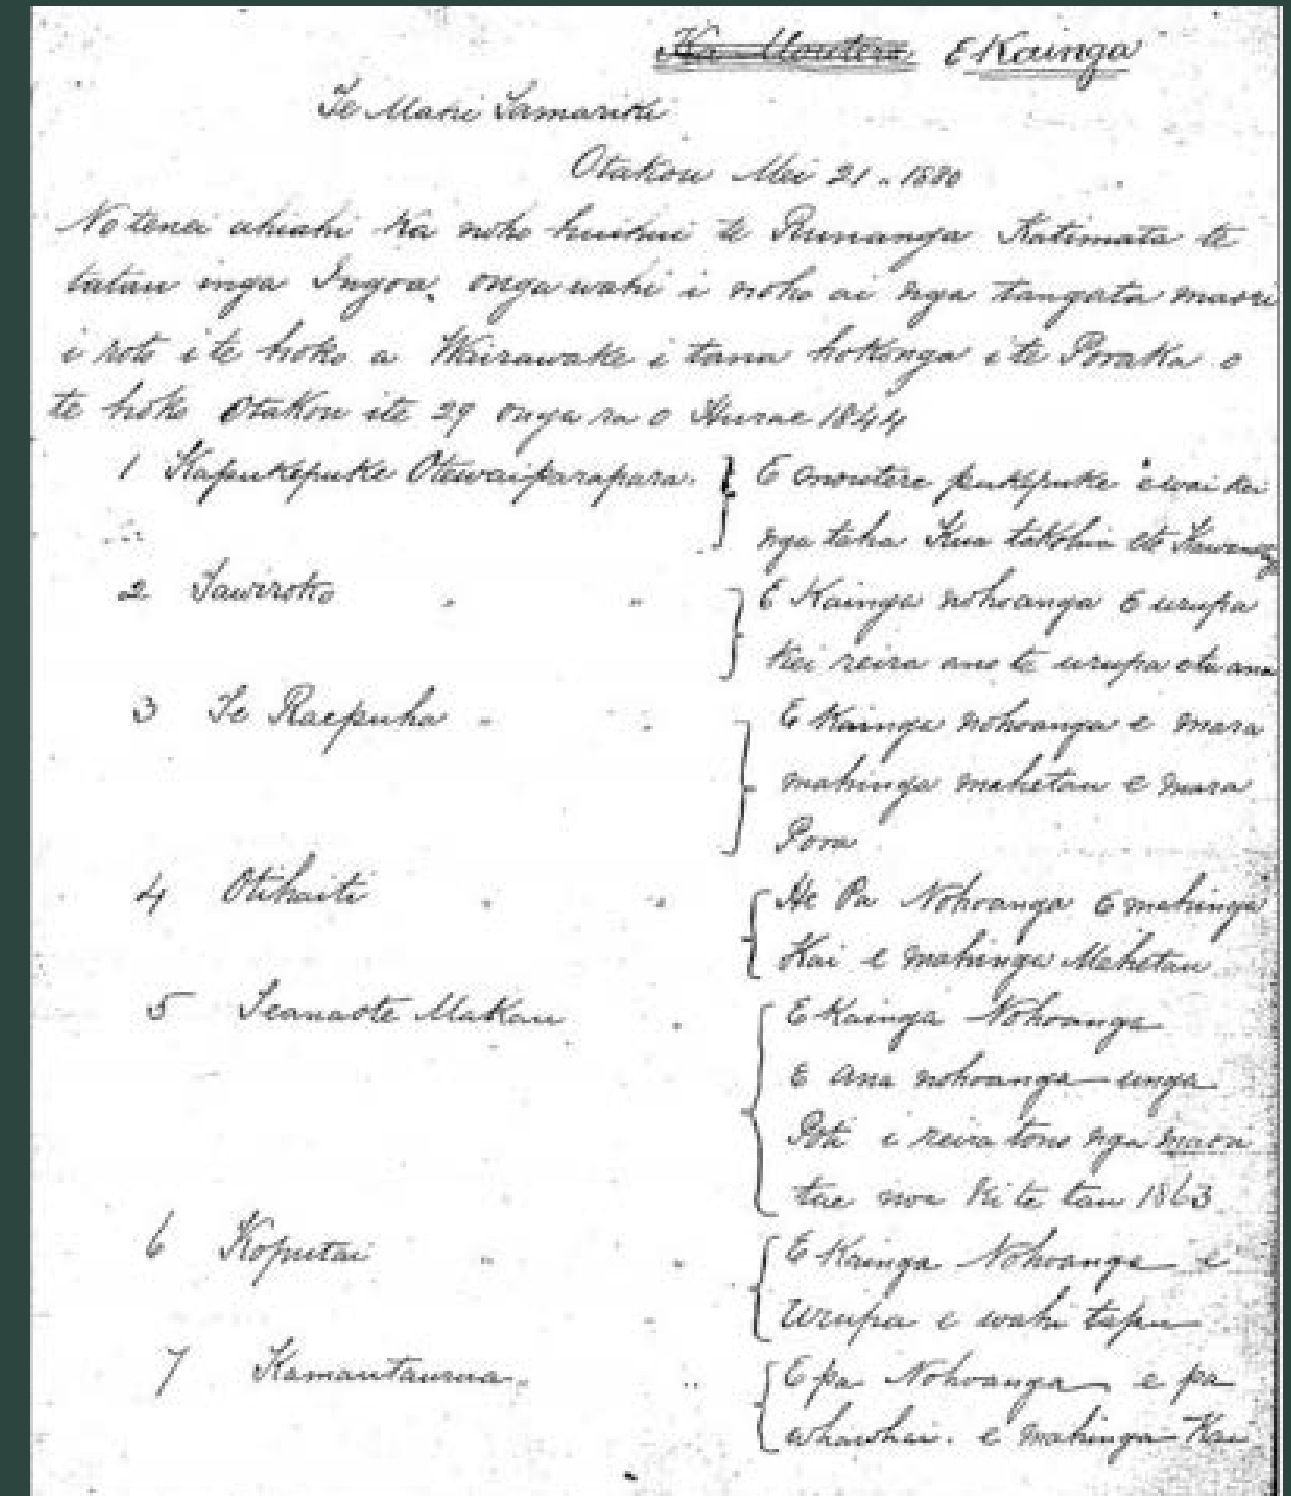 Ka Moutere E Kainga
Te Mahi Tamariki
Otakou Mei 21. 1880
No tenei ahiahi ka noho huihui te Runanga Katimata te
tatau inga Ingoa, onga wahi i noho ai nga tangata maori
i roto i te hoko a Wairawake i tana hokonga i te Poraka o
te hoko Otakou ite 29 onga ra o Hurae 1844
1 Kapukepuke Otewaiparapara. E moutere pukepuke e wai kei
nga taha Kua takohia ete
2 Tawiroko E Kainga nohoanga E urupa
Kei reira ano te urupa
3 Te Raepuha E Kainga nohoanga e mara
mahinga mahetau e mara
Pora
4 Otihaiti He Pa Nohoanga E mahinga
Kai e mahinga Mahetau
5 Teanaote Makau E Kainga Nohoanga
E ana nohoanga unga
Poti i reira tonu nga maori
tae noa ki te tau 1863
6 Koputai E Kainga Nohoanga e
Urupa e wahi tapu
7 Kamautaurua E pa Nohoanga e pa
whawhai. e mahinga Kai